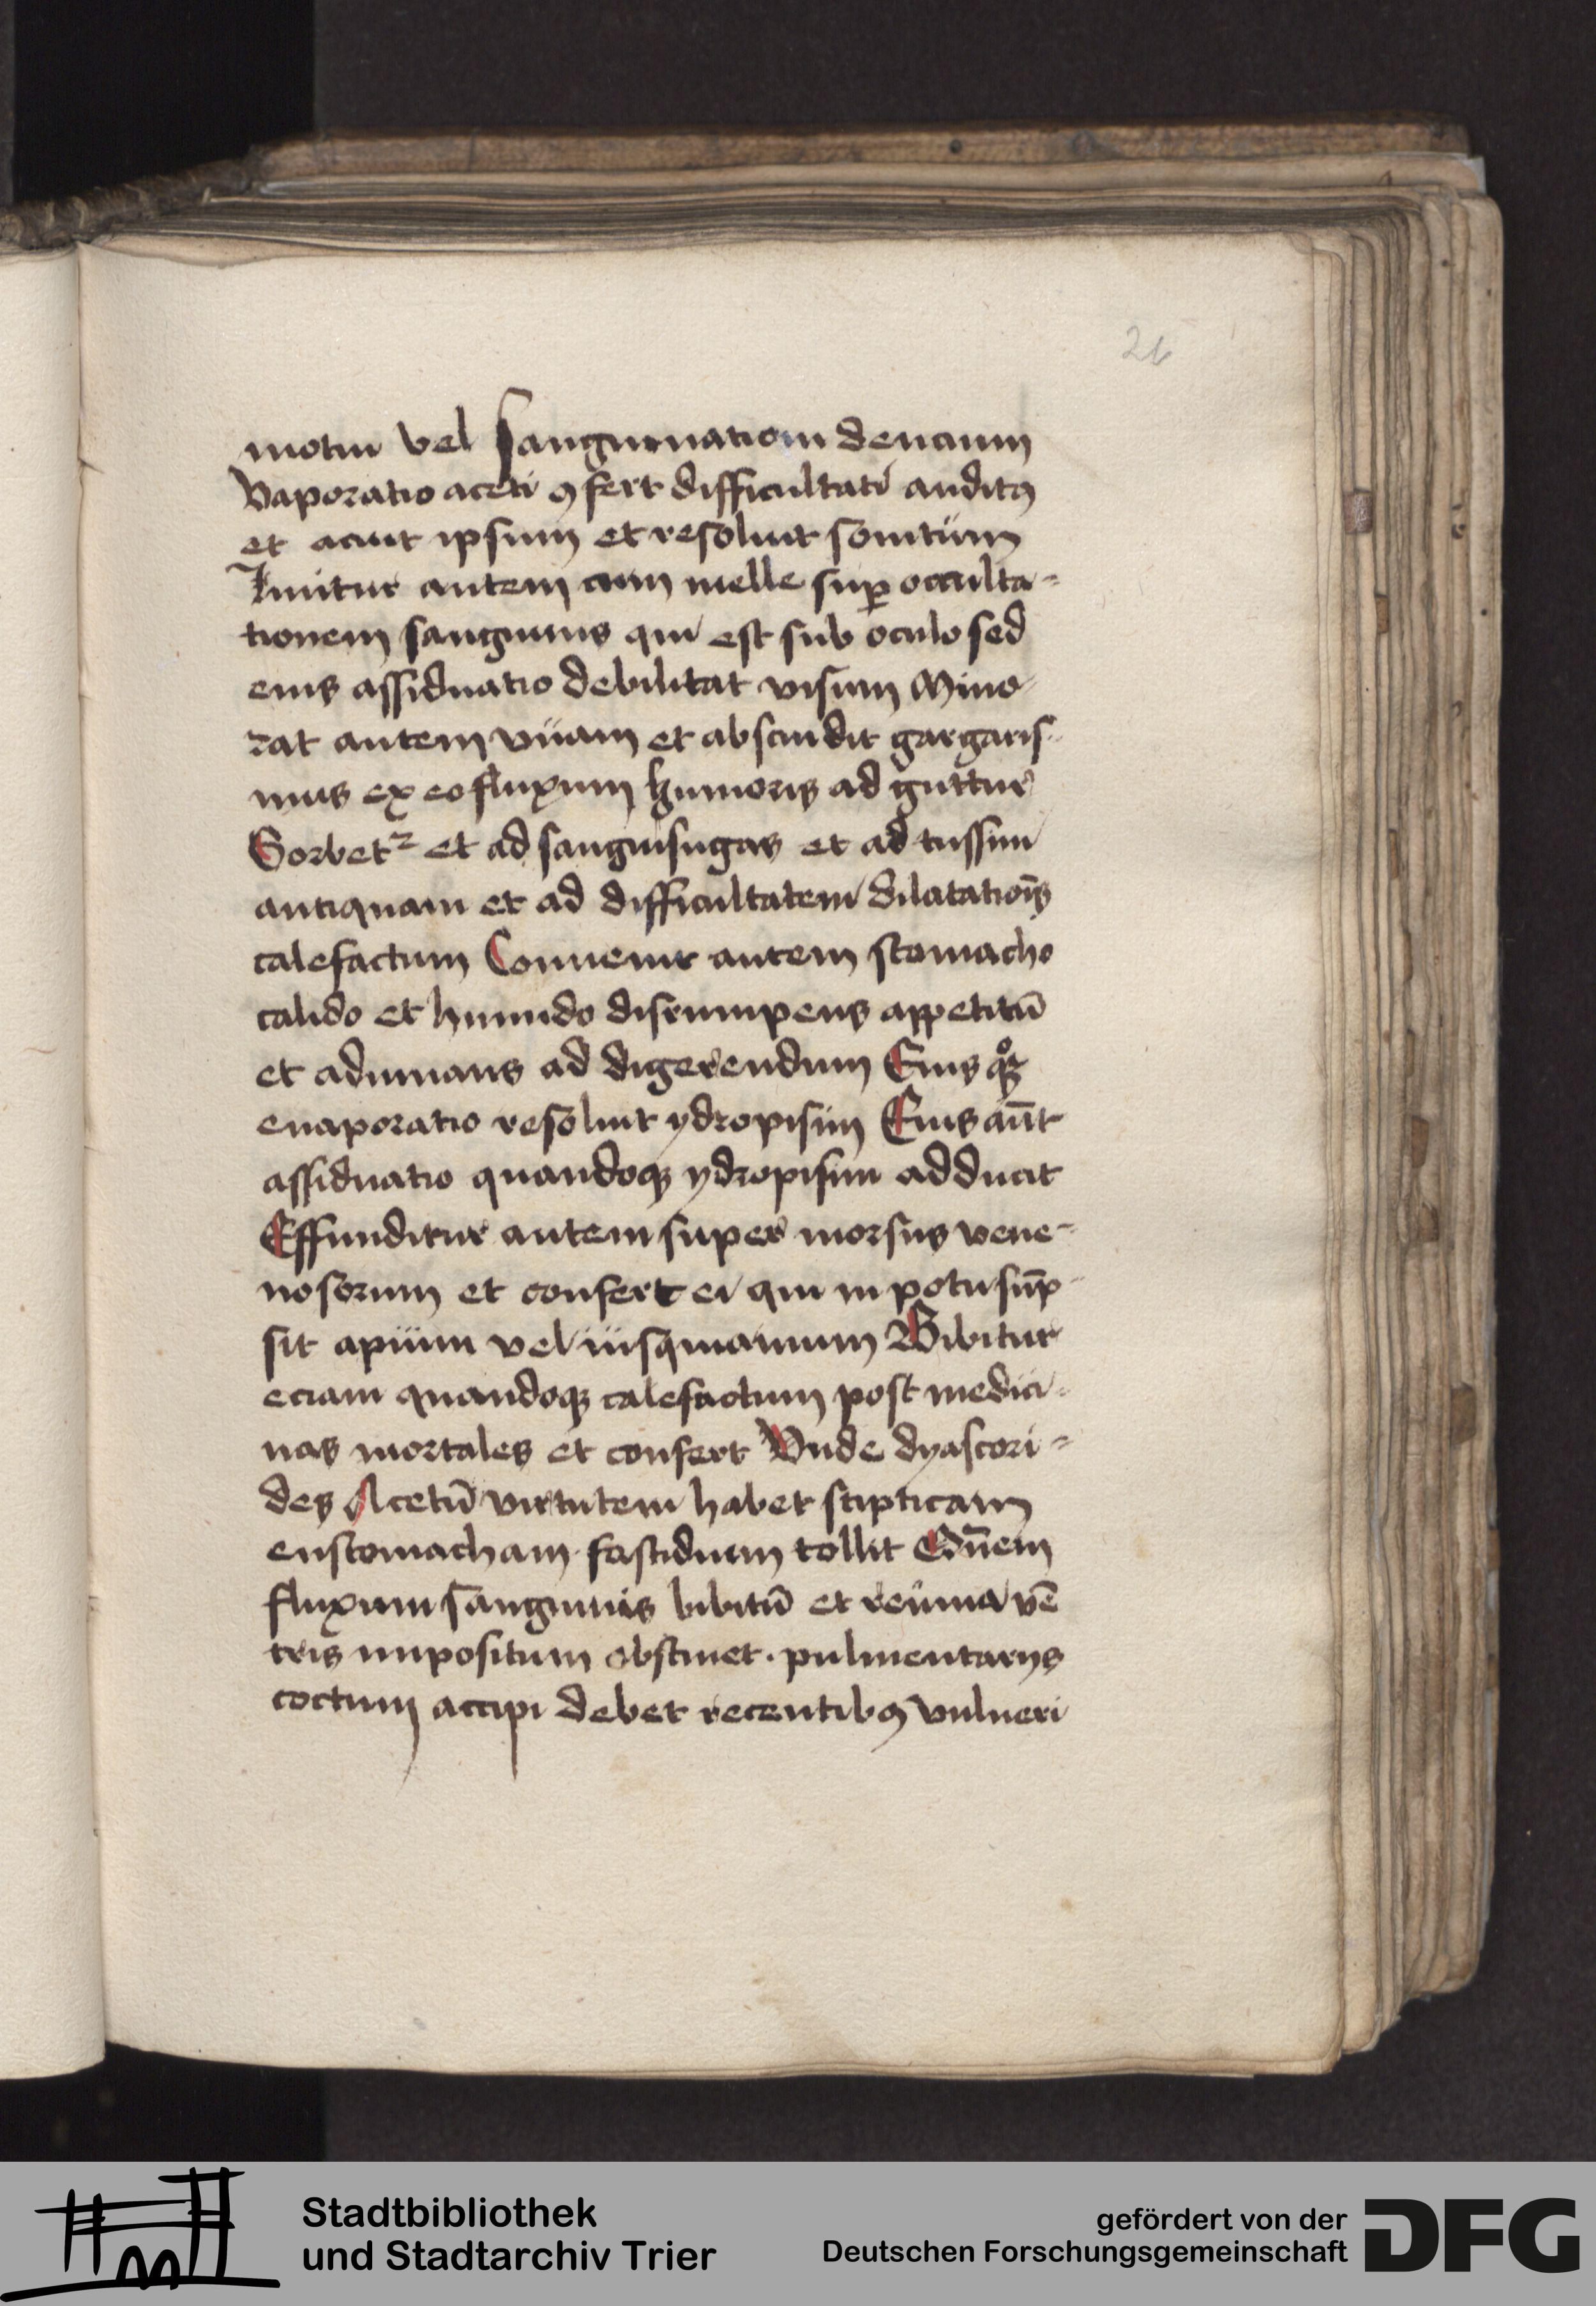 26
motui vel sanguinationi dencium
Vaporatio aceti ꝯfert difficultati auditꝯ
et acuit ipsum et resoluit sonitum
Linitur autem cum melle suꝑ occulta-
tionem sanguinis qui est sub oculo sed
eius assiduatio debilitat visum Mino
rat autem vuam et abscindit gargaris-
mus ex eo fluxum humoris ad guttur
Sorbetꝛ et ad sanguisugas et ad tussim
antiquam et ad difficultatem dilatatiōis
calefactum Conuenit autem stomacho
calido et humido disrumpens appetitū
et adiuuans ad digerendum Eius qͦꝫ
euaporatio resoluit ydropisim Eius aūt
assiduatio quandoqꝫ ydropisim adducit
Effunditur autem super morsus vene-
nosorum et confert ei qui in potu sūp-
sit apium vel iusquiamum Bibitur
eciam quandoqꝫ calefactum post medici-
nas mortales et confert Vnde dyascori-
des Acetū virtutem habet stipticam
eustomacham. fastidium tollit Oūem
fluxum sanguinis bibitū et reuma vē
tris impositum obstinet. pulmentarijs
coctum accipi debet recentibꝯ vulneri
Stadtbibliothek
und Stadtarchiv Trier
gefördert von der
Deutschen Forschungsgemeinschaft
DFG